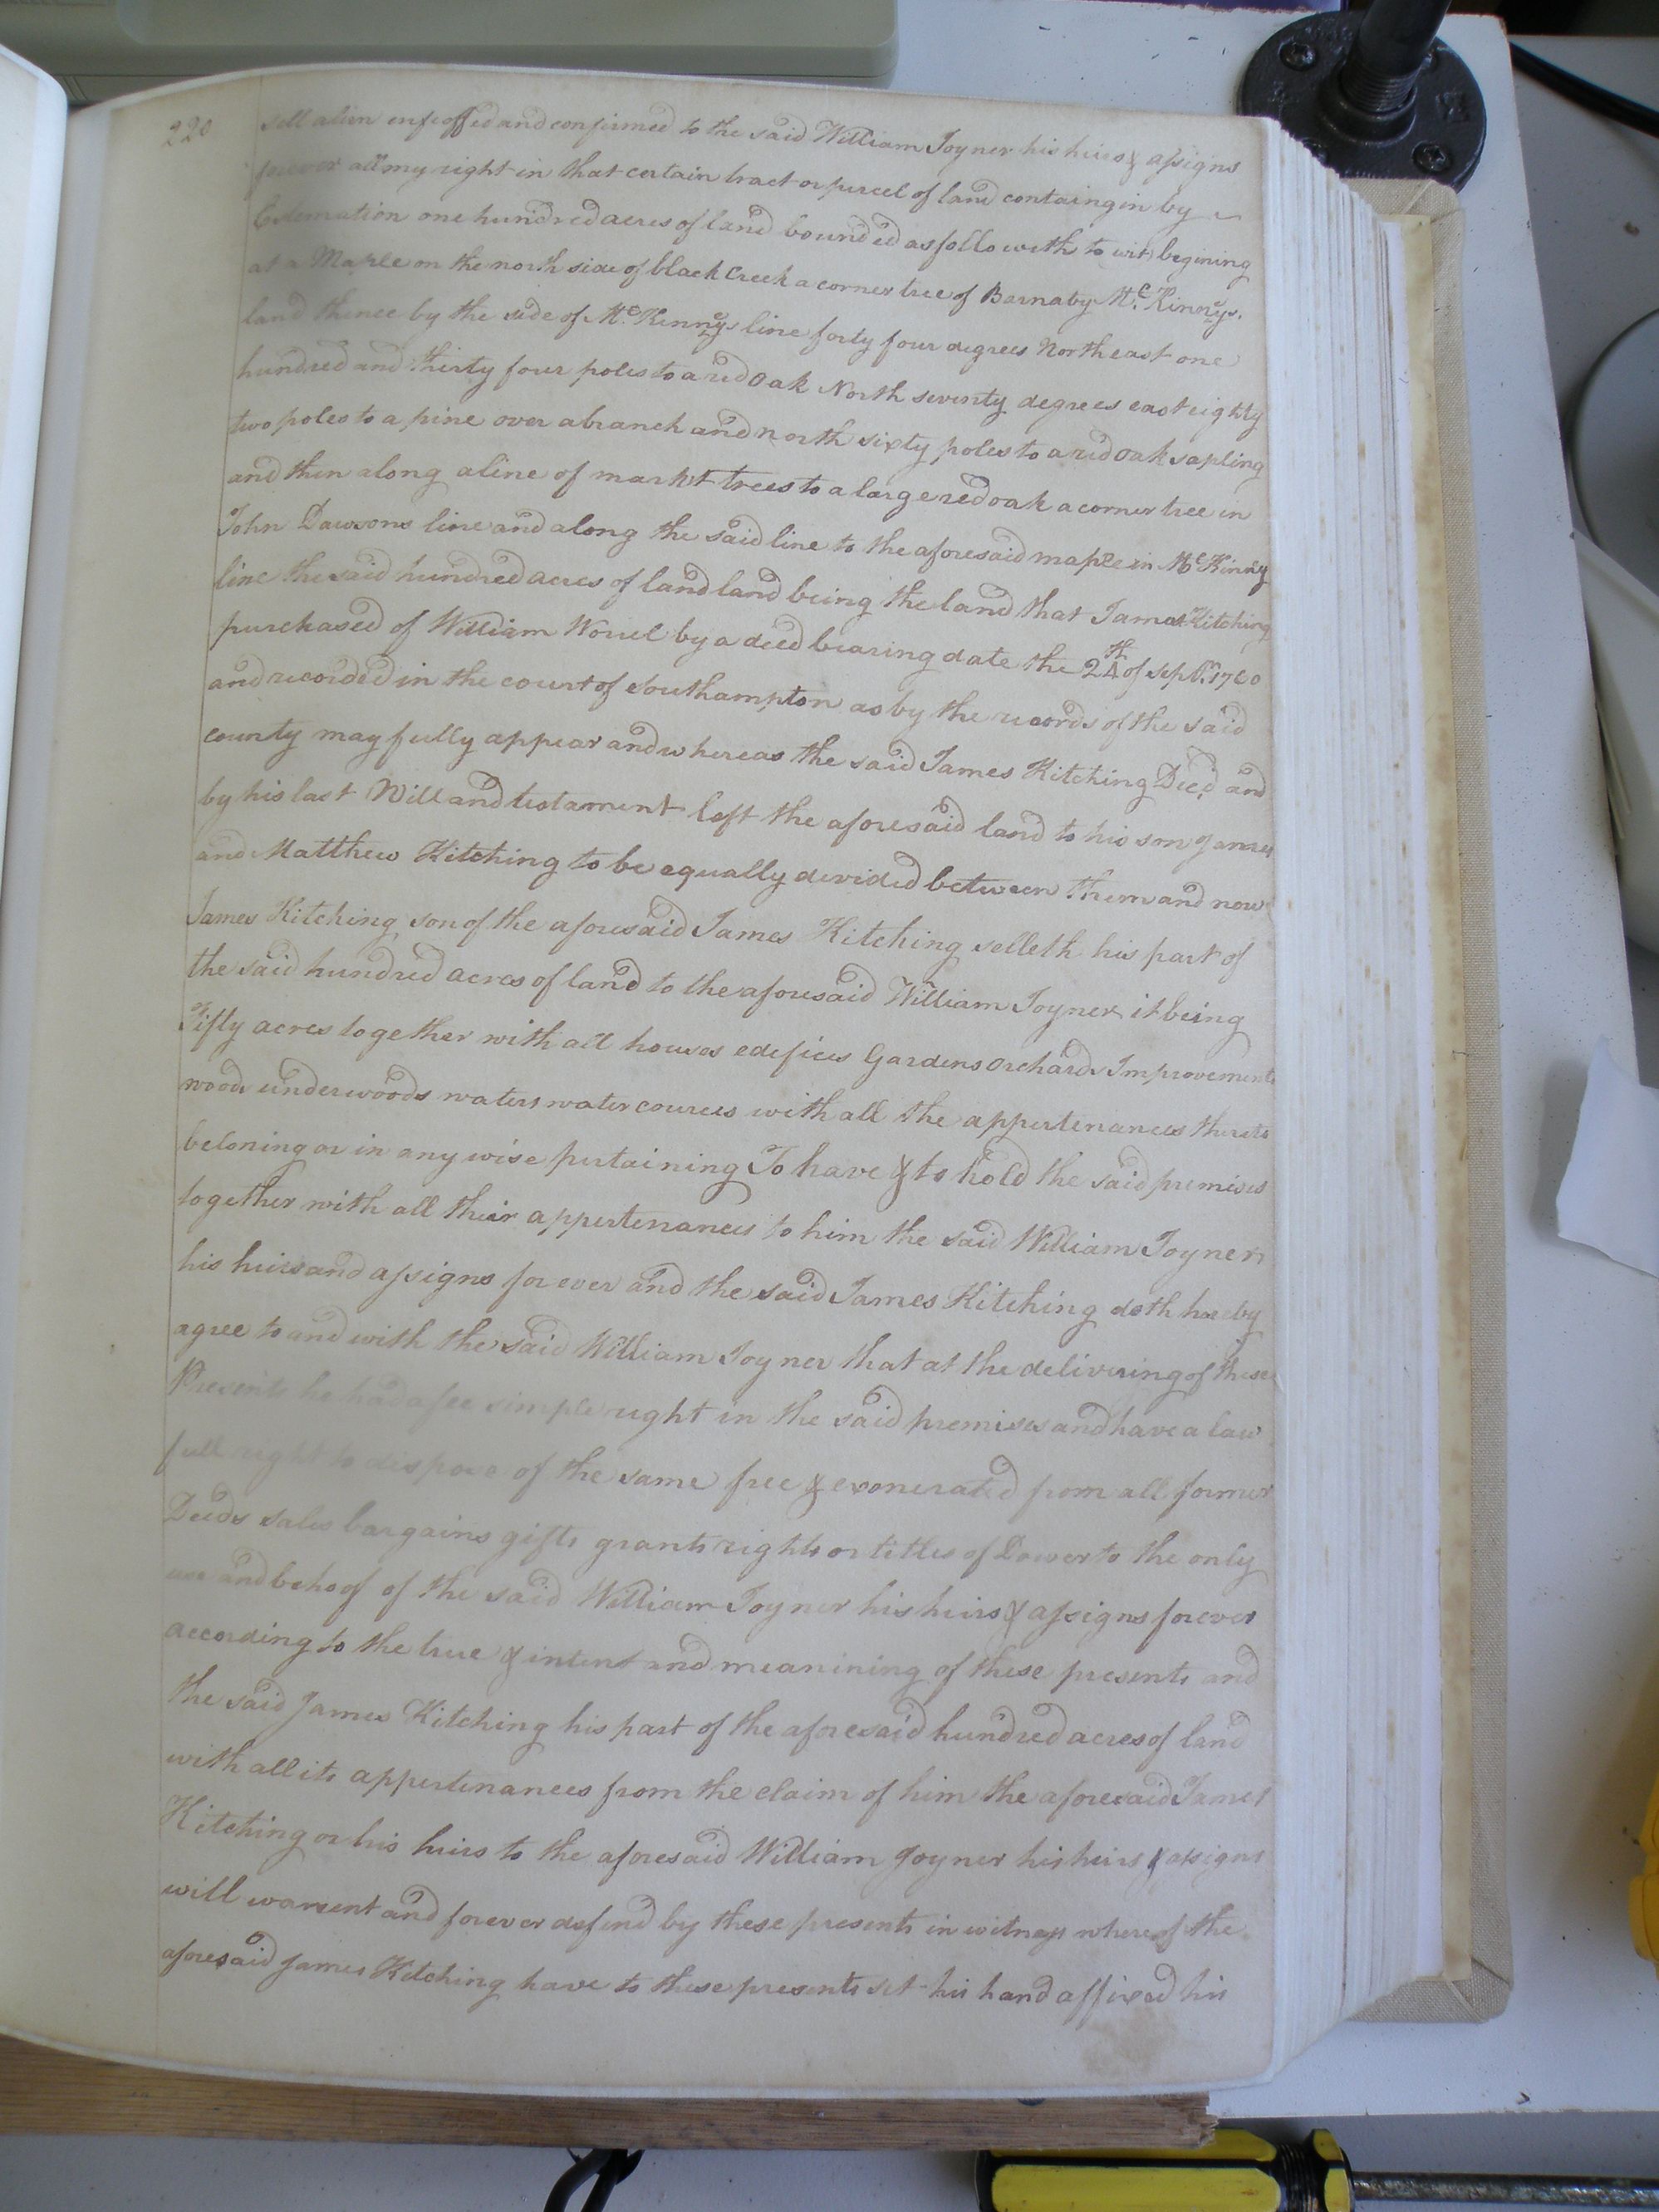 220
sell alien enfeoffed and confirmed to the said William Joyner his heirs & assigns
forever all my right in that certain tract or parcel of land containgin by
Estemation one hundred acres of land bounded as followeth to wit begining
at a Maple on the north side of black Creek a corner tree of Barnaby Mc. Kinneys.
land thence by the side of Mc. Kenneys line forty four degrees North east one
hundred and thirty four poles to a red oak North seventy degrees east eighty
two poles to a pine over a branch and north sixty poles to a red oak sapling
and then along a line of markt trees to a large red oak a corner tree in
John Dawsons line and along the said line to the aforesaid maple in Mc Kinney
line the said hundred acres of land land being the land that James Kitching
purchased of William Worrel by a deed bearing date the 24th of Sept. 1760
and recorded in the court of Southampton as by the records of the said
county may fully appear and whereas the said James Kitching Decd and
by his last Will and testament left the aforesaid land to his son James
and Matthew Kitching to be equally devided between them and now
James Kitching son of the aforesaid James Kitching selleth his part of
the said hundred acres of land to the aforesaid William Joyner it being
Fifty acres together with all houses edefices Gardens Orchards Improvements
woods underwoods waters water courses with all the appertenances thereto
beloning or in any wise pertaining To have & to hold the said premises
together with all their appertenances to him the said William Joyner
his heirs and assigns forever and the said James Kitching doth hereby
agree to and with the said William Joyner that at the delivering of these
Presents he had a fee simple right in the said premises and have a law
full right to dispose of the same free & exonerated from all former
Deeds sales bargains gifts grants rights or titles of Dower to the only
use and behoof of the said William Joyner his heirs & assigns forever
according to the true & intent and meanining of these presents and
the said James Kitching his part of the aforesaid hundred acres of land
with all its appertenances from the claim of him the aforesaid James
Kitching or his heirs to the aforesaid William Joyner his heirs & assigns
will warrent and forever defend by these presents in witness whereof the
aforesaid James Kitching have to these presents set his hand affixed his